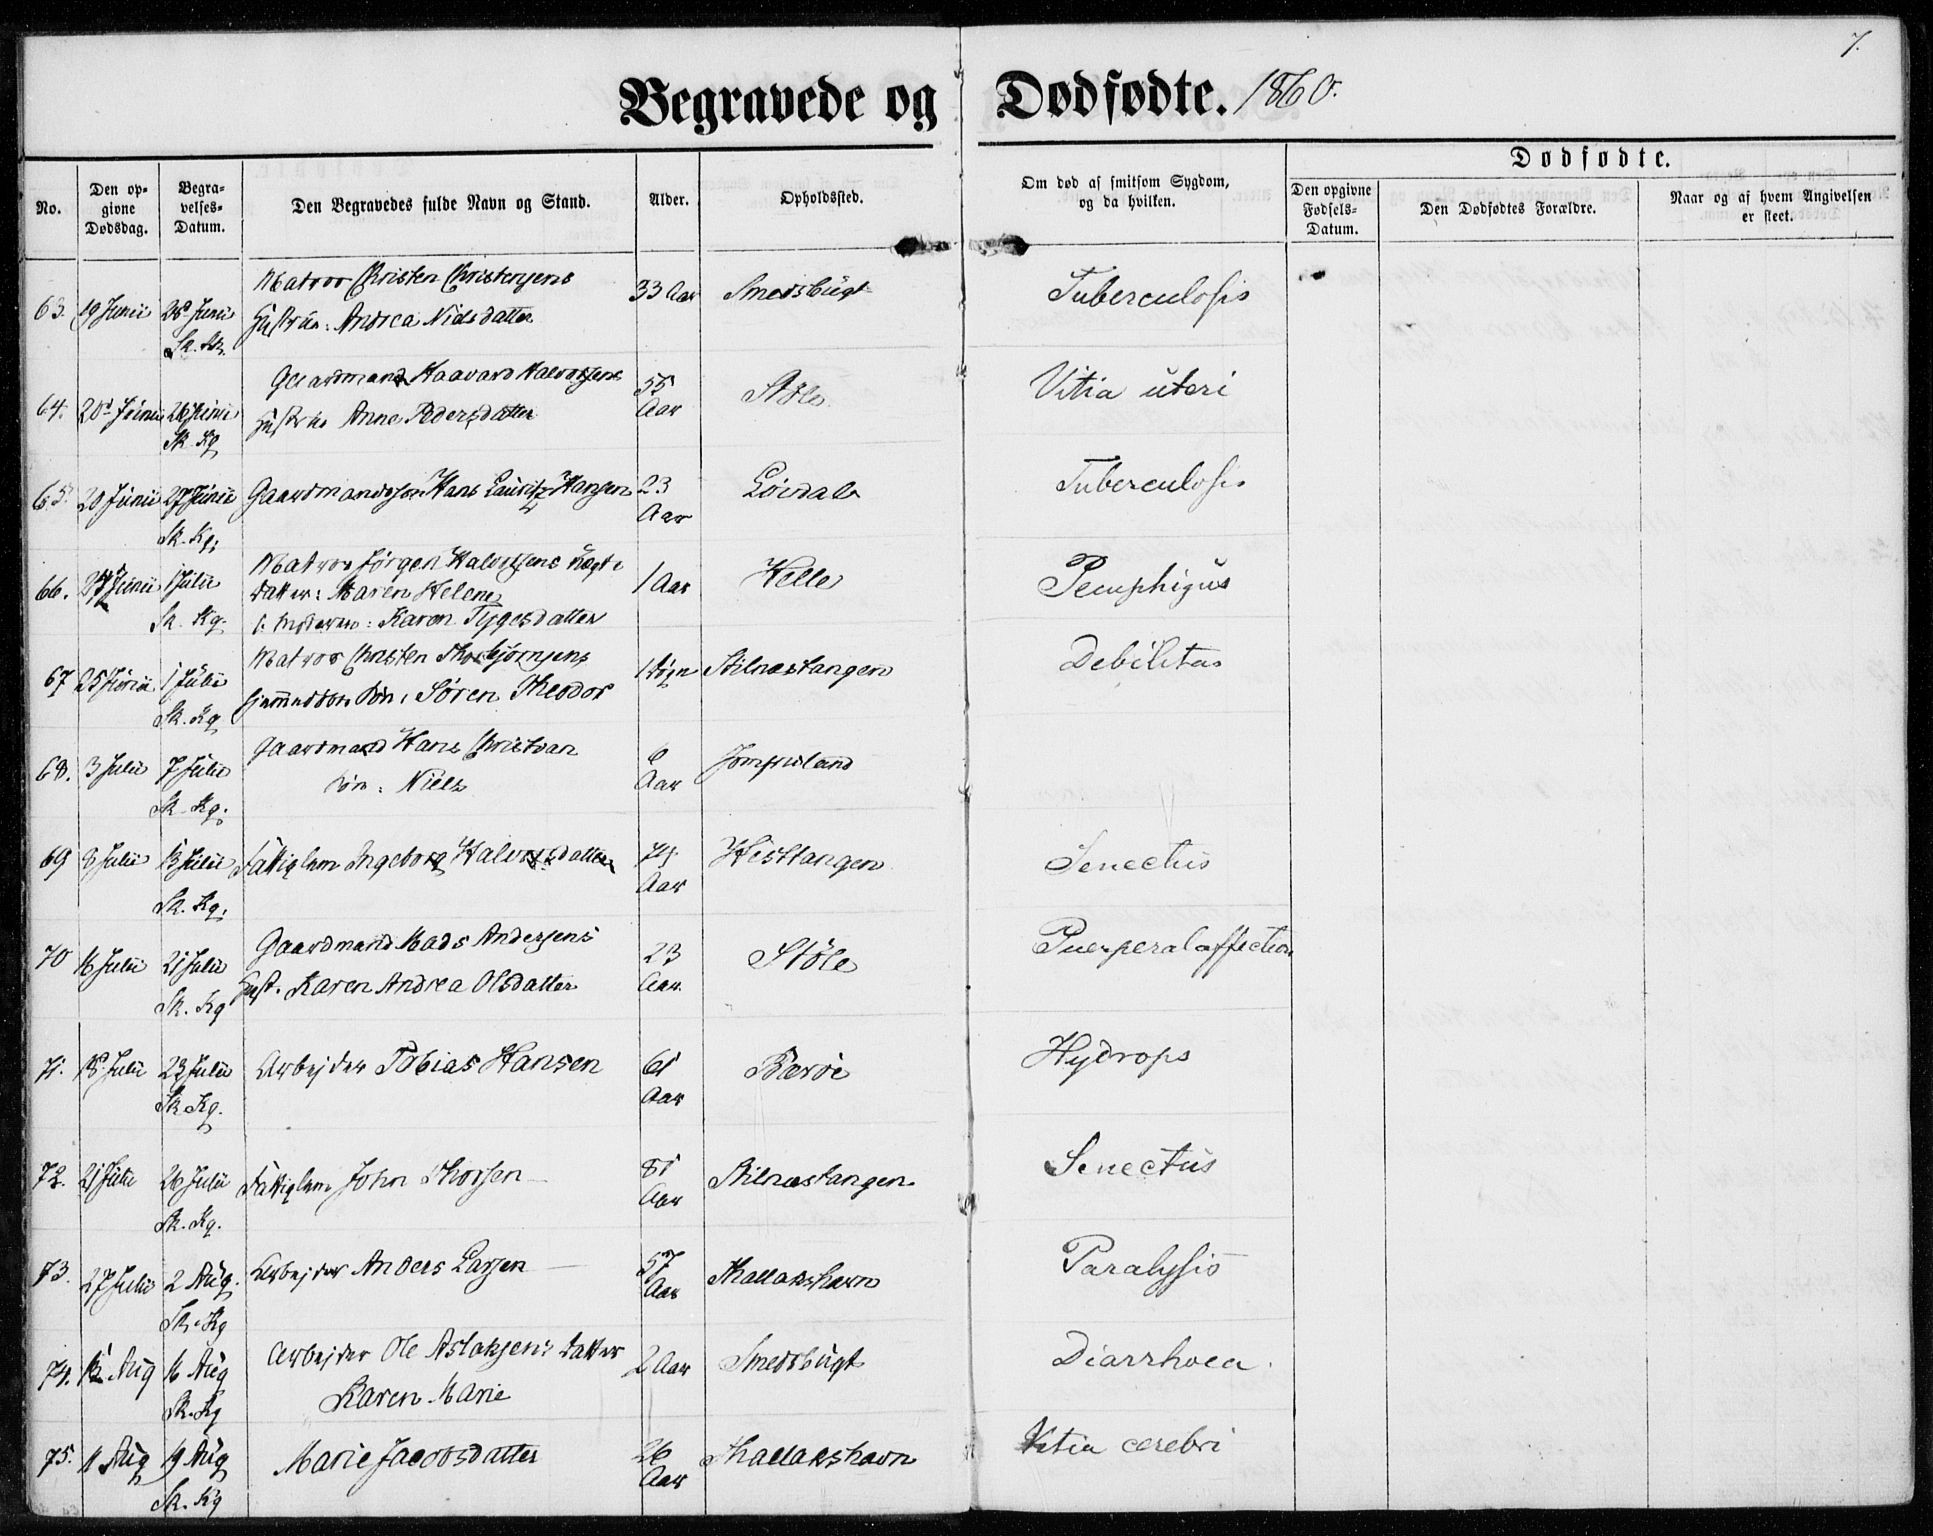 7.
Begravede og Dødfødte. 1860.
No. | Den opgivne Dødsdag. | Begravelses-Datum. | Den Begravedes fulde Navn og Stand. | Alder. | Opholdssted. | Om død af smitsom Sygdom, og da hvilken. | Dødfødte. | Den opgivne Fødsels-Datum. | Den Dødfødtes Forældre. | Naar og af hvem Angivelsen er skeet.
63. | 19 Junii | 28 Junii Sk. Kg. | Matros Christen Christensens Hustrue: Andrea Nielsdatter | 33 Aar | Smedsbugt | Tuberculosis
64. | 20 Junii | 26 Junii Sk. Kg | Gaardmand Haavard Halvorsens Hustrue Anne Pedersdatter | 55 Aar | Støle | Vitia uteri
65. | 20 Junii | 27 Junii Sk. Kg. | Gaardmandssøn Hans Lauritz Hansen | 23 Aar | Løvdal | Tuberculosis
66. | 24 Junii | 1 Julii Sk. Kg. | Matros Jørgen Halvorsens uægte Datter: Maren Helene, Moderen: Karen Tygesdatter | 1 Aar | Helle | Pemphigus
67 | 25 Junii | 1 Julii Sk. Kg | Matros Christen Thorbjørnsens hjemmedøbte Søn: Søren Theodor | 1 Døgn | Stilnestangen | Debilitas
68. | 3 Julii | 7 Julii Sk. Kg. | Gaardmand Hans Christian Søn: Niels | 6 Aar | Jomfruland
69 | 8 Julii | 13 Julii Sk. Kg. | Fattiglem Ingeborg Halvorsdatter | 74 Aar | Hesttangen | Senectus
70 | 16 Julii | 21 Julii Sk. Kg | Gaardmand Mads Andersens Hust. Karen Andrea Olsdatter | 23 Aar | Støle | Puerperalaffection
71. | 18 Julii | 23 Julii Sk. Kg. | Arbejder Tobias Hansen | 61 Aar | Bærøe | Hydrops
72. | 21 Julii | 26 Julii Sk. Kg. | Fattiglem John Thorsen | 81 Aar | Stilnestangen | Senectus
73. | 27 Julii | 2 Aug. Sk. Kg | Arbejder Anders Larsen | 57 Aar | Thallakshavn | Paralysis
74. | 12 Aug | 16 Aug Sk. Kg | Arbejder Ole Aslaksens Datter Karen Marie | 2 Aar | Smedsbugt | Diarrhoea.
75. | 11 Aug | 19 Aug Sk. Kg | Marie Jacobsdatter | 26 Aar | Thallakshavn | Vitia cerebri